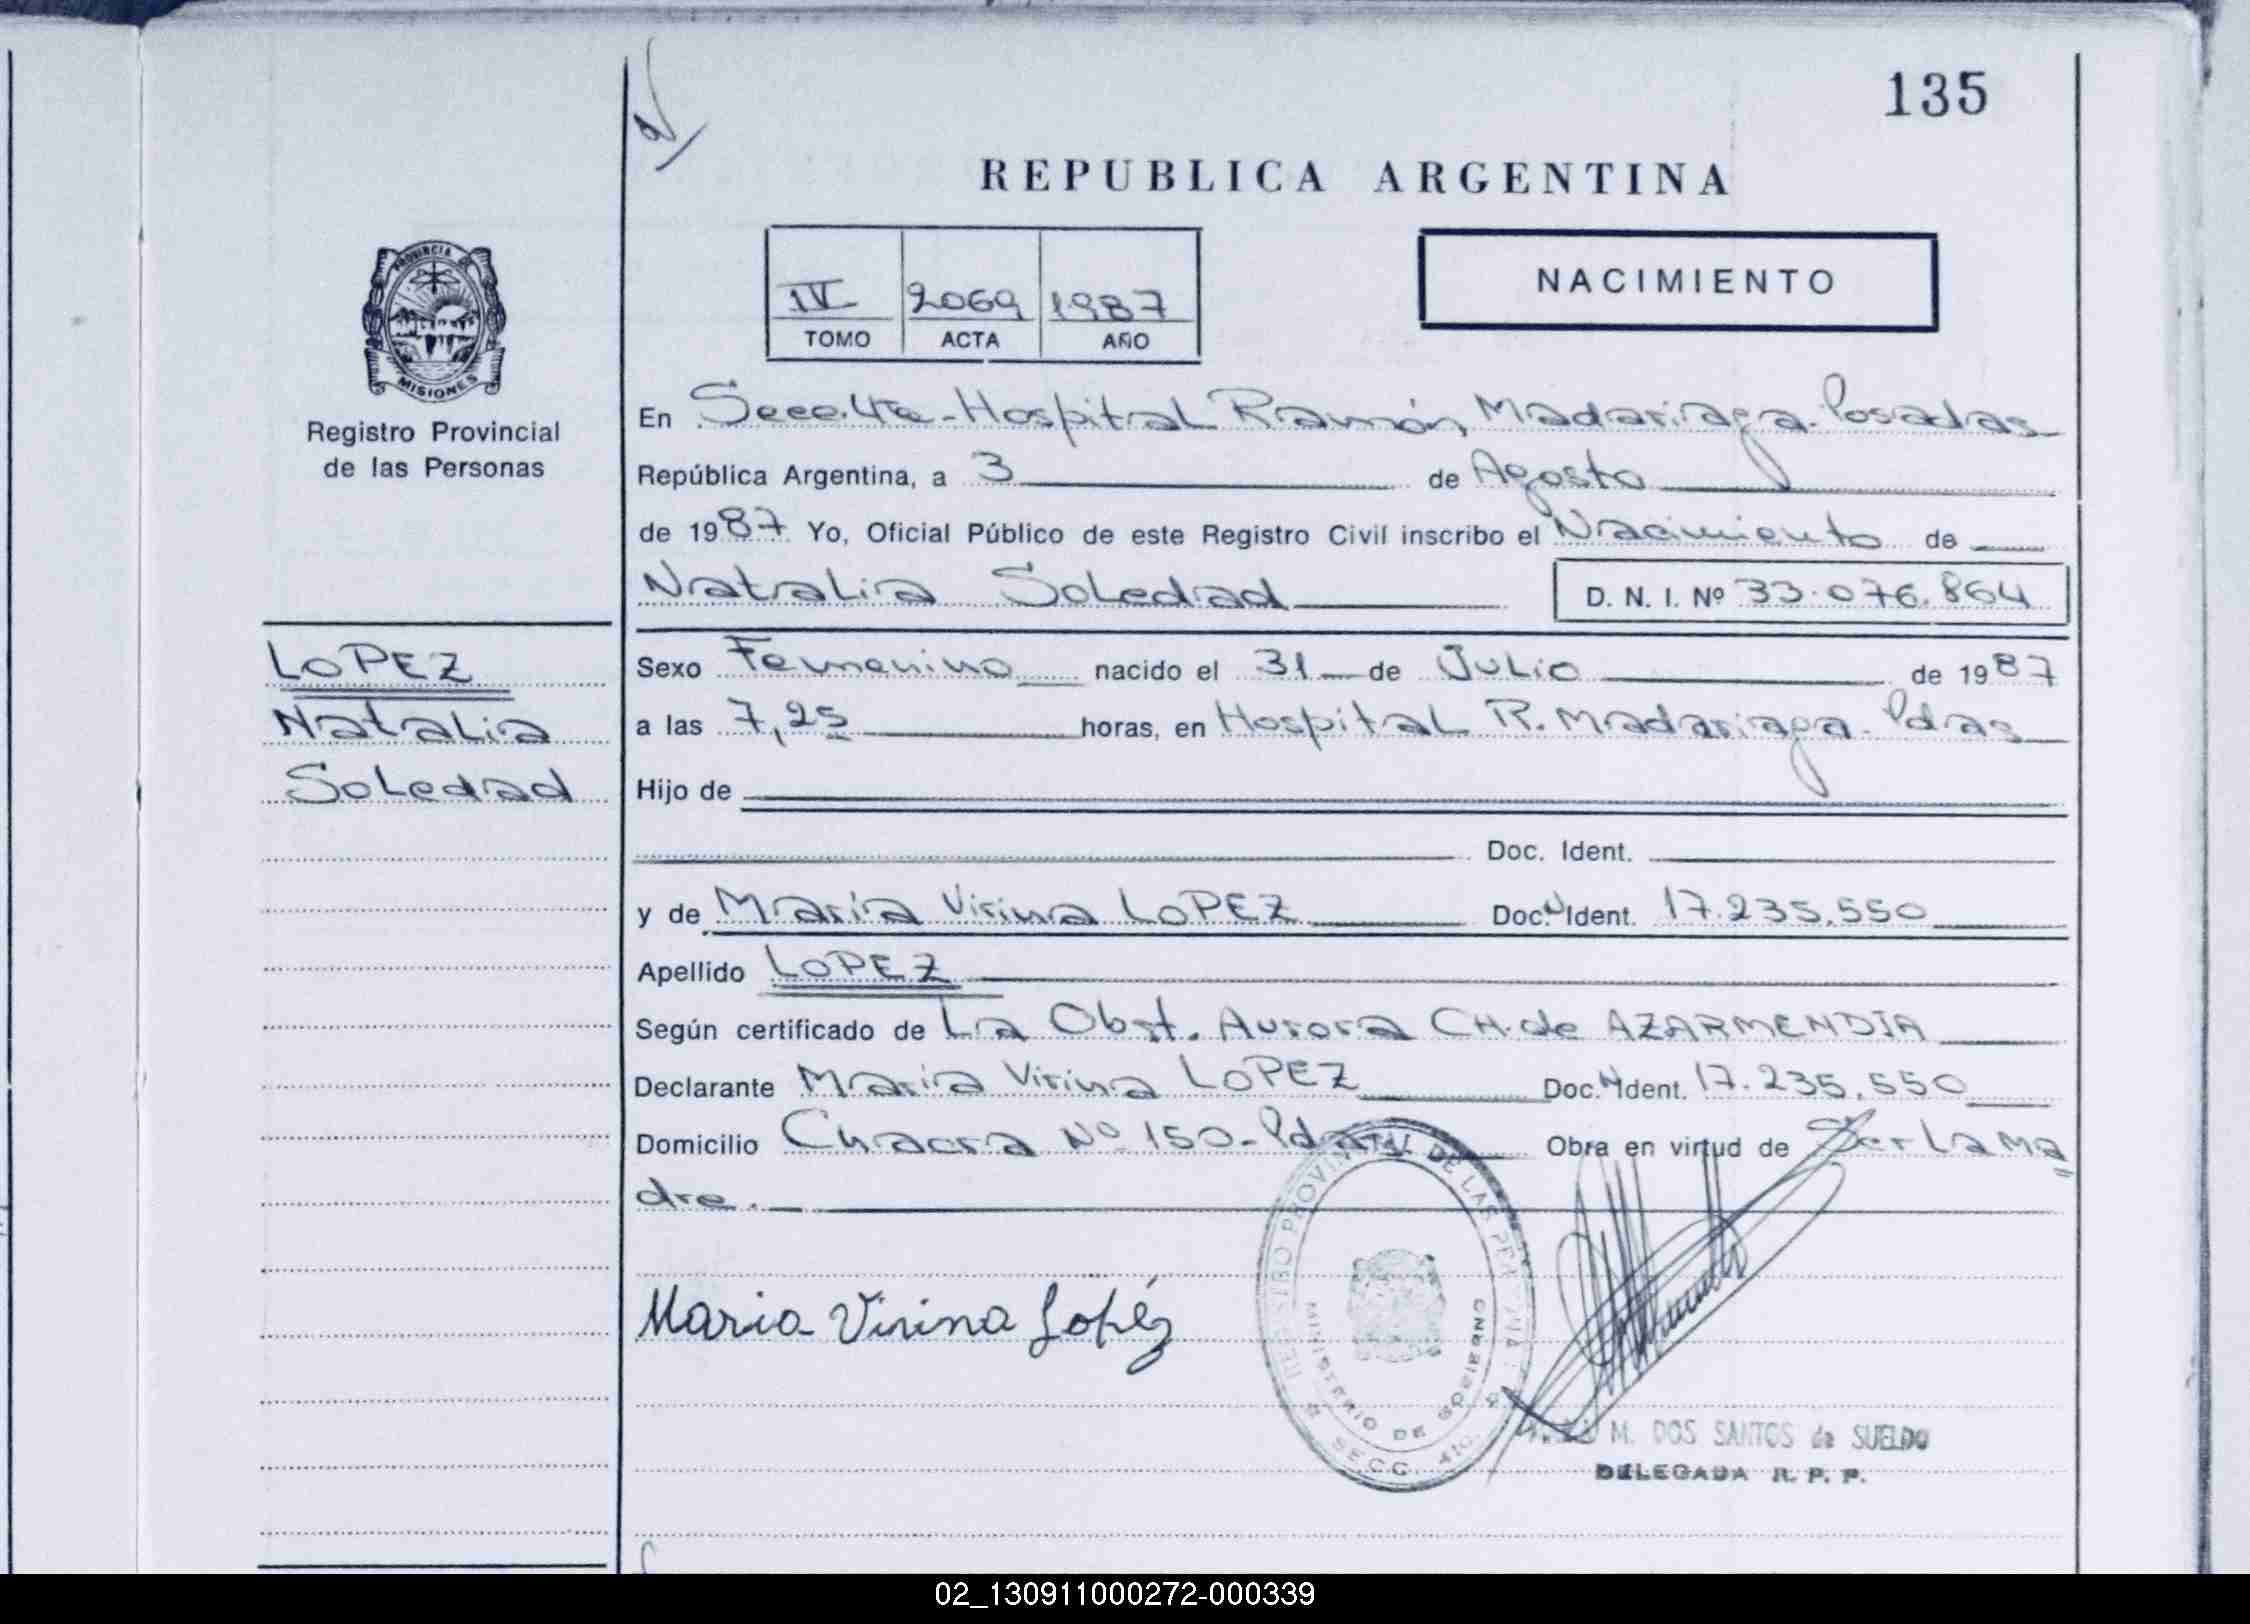 135
REPUBLICA ARGENTINA
IV 2069 1987
TOMO ACTA AÑO
NACIMIENTO
PROVINCIA DE
MISIONES
Registro Provincial
de las Personas
En Secc. 4ta - Hospital Ramón Madariaga. Posadas
República Argentina, a 3 de Agosto
de 1987 Yo, Oficial Público de este Registro Civil inscribo el Nacimiento de
Natalia Soledad D. N. I. Nº 33.076.864
LOPEZ
Natalia
Soledad
Sexo Femenino nacido el 31 de Julio de 1987
a las 7,25 horas, en Hospital R. Madariaga. Pdas
Hijo de
Doc. Ident.
y de Maria Virina LOPEZ Doc. N Ident. 17.235.550
Apellido LOPEZ
Según certificado de La Obst. Aurora CH. de AZARMENDIA
Declarante Maria Virina LOPEZ Doc. N Ident. 17.235.550
Domicilio Chacra Nº 150 - Pdas Obra en virtud de Ser La Ma
dre.
REGISTRO PROVINCIAL DE LAS PERSONAS
MINISTERIO DE GOBIERNO
SECC. 4ta.
Maria Virina Lopéz
M. DOS SANTOS de SUELDO
DELEGADA R. P. P.
02_130911000272-000339